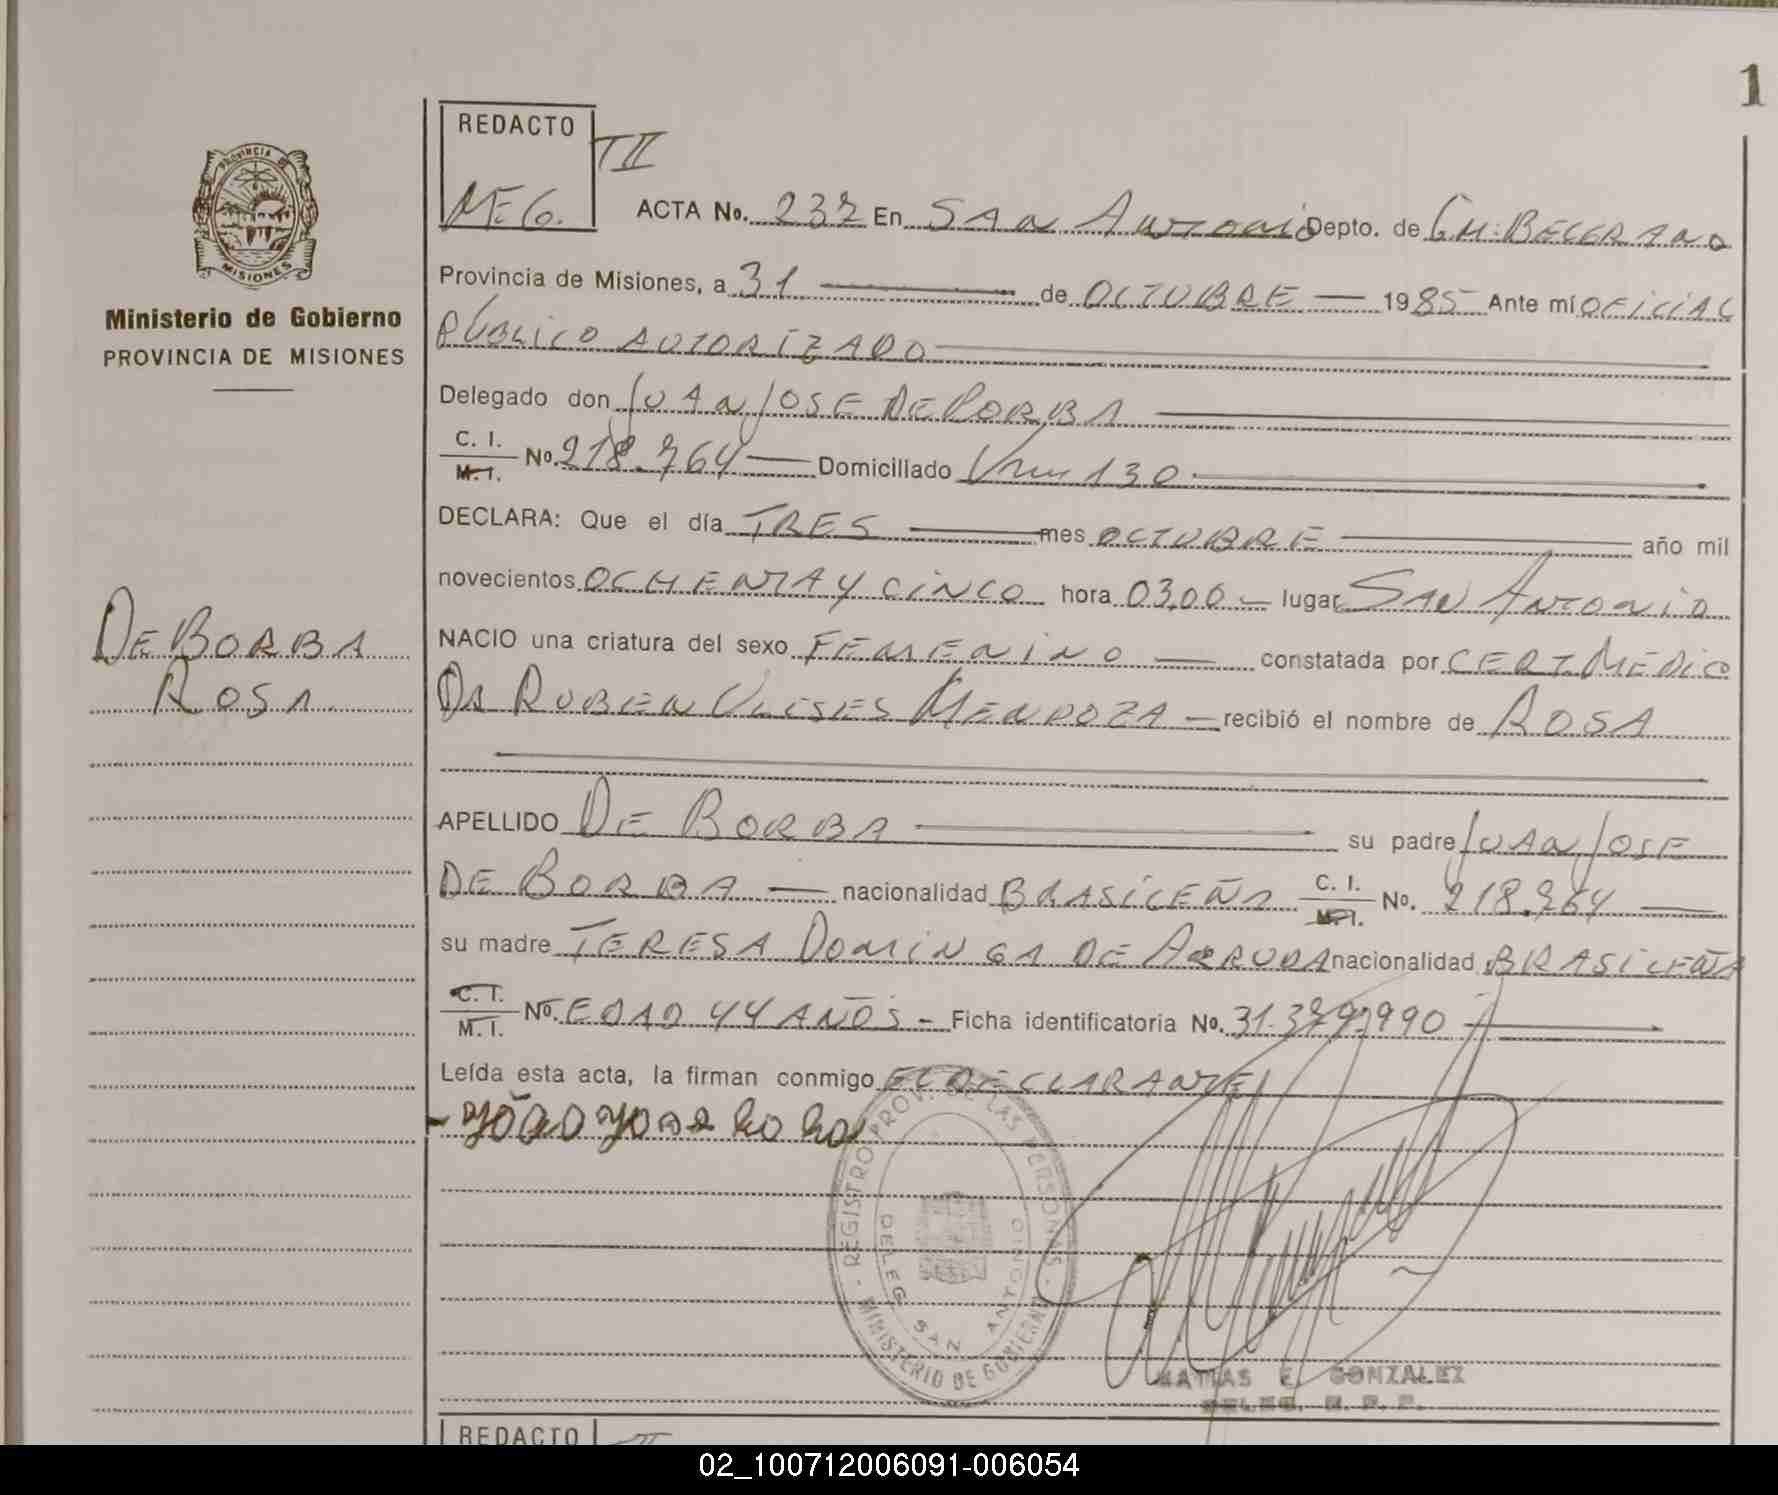 1
REDACTO
T II
M.E.G.
ACTA No. 237 En SAN ANTONIO Depto. de GM. BELGRANO
PROVINCIA DE
MISIONES
Provincia de Misiones, a 31 de OCTUBRE 1985 Ante mí OFICIAL
Ministerio de Gobierno
PROVINCIA DE MISIONES
PUBLICO AUTORIZADO
Delegado don JUAN JOSE DE BORBA
C. I.
M. I. No. 218.764 Domiciliado 130
DECLARA: Que el día TRES mes OCTUBRE año mil
novecientos OCHENTA Y CINCO hora 03,00 lugar SAN ANTONIO
DE BORBA
ROSA
NACIO una criatura del sexo FEMENINO constatada por CERT. MEDICO
DR RUBEN ULISES MENDOZA recibió el nombre de ROSA
APELLIDO DE BORBA su padre JUAN JOSE
DE BORBA nacionalidad BRASILEÑA C. I. M. I. No. 218.764
su madre TERESA DOMINGA DE ARRUDA nacionalidad BRASILEÑA
C. I.
M. I. No. EDAD 44 AÑOS - Ficha identificatoria No.
Leída esta acta, la firman conmigo EL DECLARANTE
REGISTRO PROV. DE LAS PERSONAS
DELEG. SAN ANTONIO
MINISTERIO DE GOBIERNO
MATIAS E. GONZALEZ
DELEG. R. P. P.
REDACTO
02_100712006091-006054